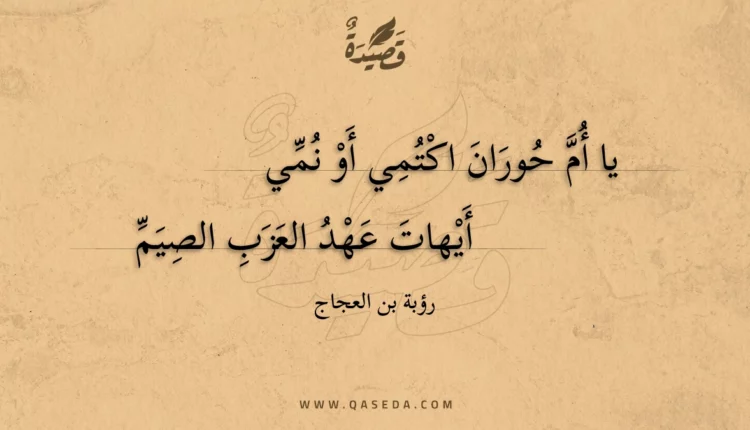 قَصِيْدَةٌ
يا أُمَّ حُورَانَ اكْتُمِي أَوْ نُمِّي
أَيْهاتَ عَهْدُ العَزَبِ الصِيَمِّ
رؤبة بن العجاج
WWW.QASEDA.COM